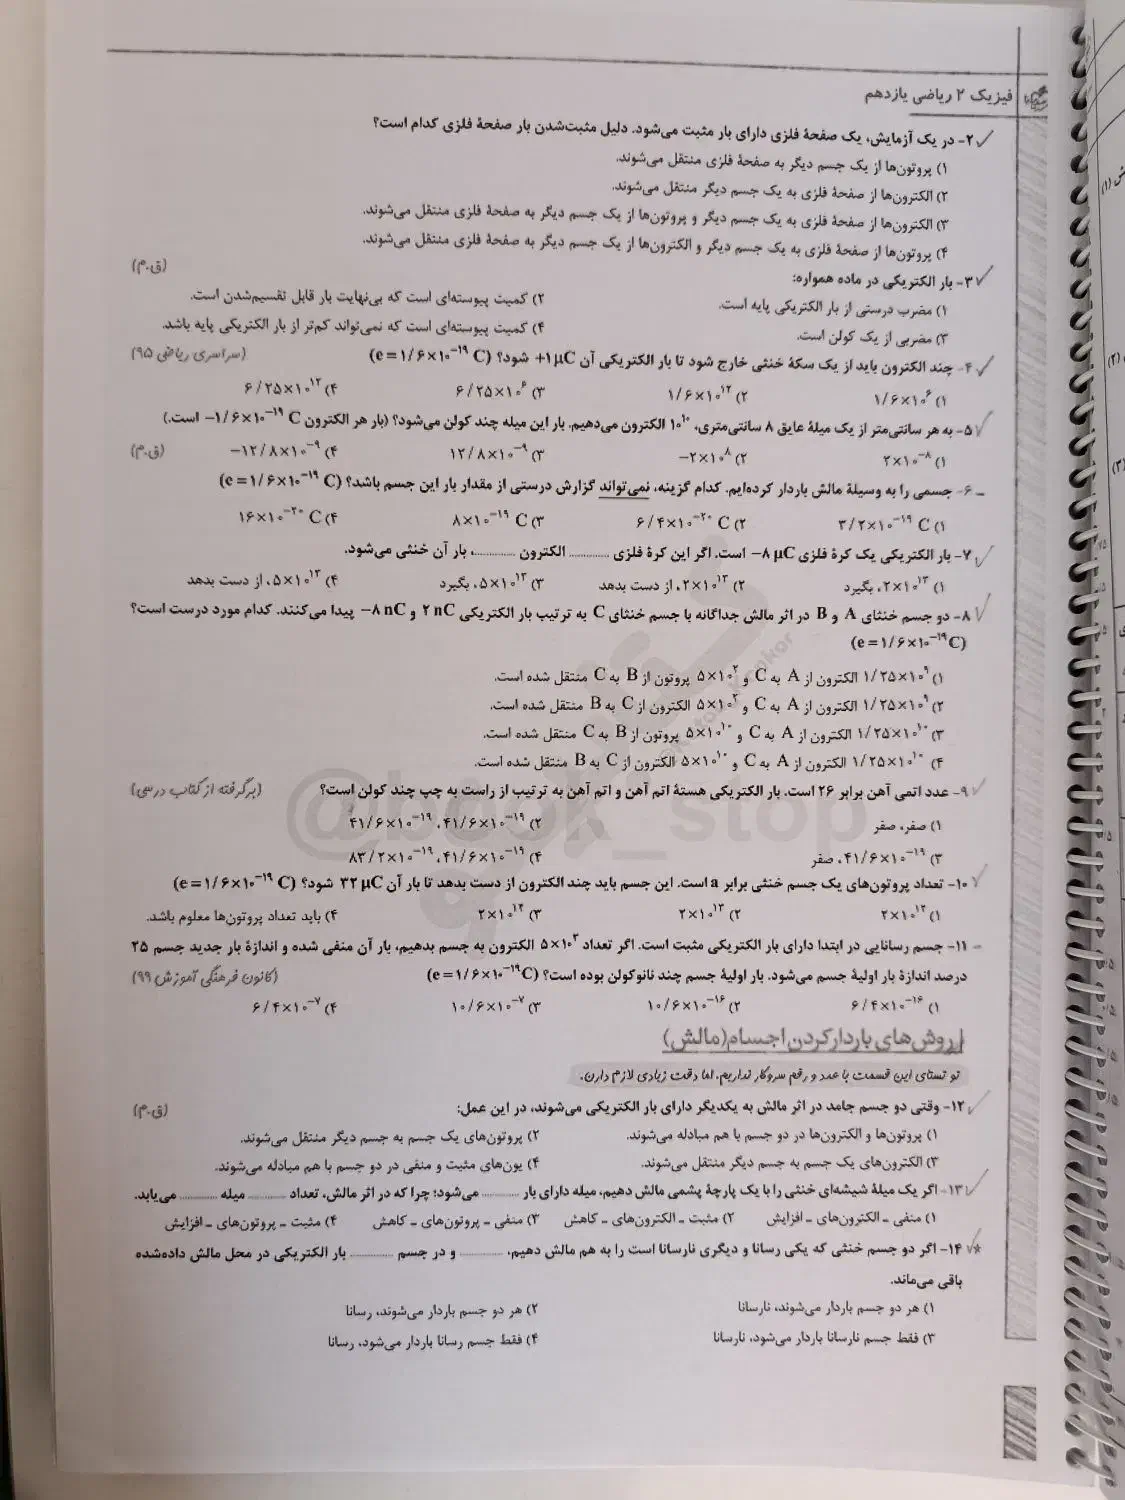 فیزیک ۲ ریاضی یازدهم
۲- در یک آزمایش، یک صفحهٔ فلزی دارای بار مثبت می‌شود. دلیل مثبت‌شدن بار صفحهٔ فلزی کدام است؟
۱) پروتون‌ها از یک جسم دیگر به صفحهٔ فلزی منتقل می‌شوند.
۲) الکترون‌ها از صفحهٔ فلزی به یک جسم دیگر منتقل می‌شوند.
۳) الکترون‌ها از صفحهٔ فلزی به یک جسم دیگر و پروتون‌ها از یک جسم دیگر به صفحهٔ فلزی منتقل می‌شوند.
۴) پروتون‌ها از صفحهٔ فلزی به یک جسم دیگر و الکترون‌ها از یک جسم دیگر به صفحهٔ فلزی منتقل می‌شوند.
۳- بار الکتریکی در ماده همواره: (ق.م)
۱) مضرب درستی از بار الکتریکی پایه است. ۲) کمیت پیوسته‌ای است که بی‌نهایت بار قابل تقسیم‌شدن است.
۳) مضربی از یک کولن است. ۴) کمیت پیوسته‌ای است که نمی‌تواند کم‌تر از بار الکتریکی پایه باشد.
۴- چند الکترون باید از یک سکهٔ خنثی خارج شود تا بار الکتریکی آن +۱ μC شود؟ (e = ۱/۶×۱۰⁻¹⁹ C) (سراسری ریاضی ۹۵)
۱) ۱/۶×۱۰⁶ ۲) ۱/۶×۱۰¹² ۳) ۶/۲۵×۱۰⁶ ۴) ۶/۲۵×۱۰¹²
۵- به هر سانتی‌متر از یک میلهٔ عایق ۸ سانتی‌متری، ۱۰¹⁰ الکترون می‌دهیم. بار این میله چند کولن می‌شود؟ (بار هر الکترون −۱/۶×۱۰⁻¹⁹ C است.)
۱) ۲×۱۰⁻⁸ ۲) −۲×۱۰⁸ ۳) ۱۲/۸×۱۰⁻⁹ ۴) −۱۲/۸×۱۰⁻⁹ (ق.م)
۶- جسمی را به وسیلهٔ مالش باردار کرده‌ایم. کدام گزینه، نمی‌تواند گزارش درستی از مقدار بار این جسم باشد؟ (e = ۱/۶×۱۰⁻¹⁹ C)
۱) ۳/۲×۱۰⁻¹⁹ C ۲) ۶/۴×۱۰⁻²⁰ C ۳) ۸×۱۰⁻¹⁹ C ۴) ۱۶×۱۰⁻²⁰ C
۷- بار الکتریکی یک کرهٔ فلزی −۸ μC است. اگر این کرهٔ فلزی ............ الکترون ............، بار آن خنثی می‌شود.
۱) ۲×۱۰¹³، بگیرد ۲) ۲×۱۰¹³، از دست بدهد ۳) ۵×۱۰¹³، بگیرد ۴) ۵×۱۰¹³، از دست بدهد
۸- دو جسم خنثای A و B در اثر مالش جداگانه با جسم خنثای C به ترتیب بار الکتریکی ۲ nC و −۸ nC پیدا می‌کنند. کدام مورد درست است؟
(e = ۱/۶×۱۰⁻¹⁹ C)
۱) ۱/۲۵×۱۰⁹ الکترون از A به C و ۵×۱۰² پروتون از B به C منتقل شده است.
۲) ۱/۲۵×۱۰⁹ الکترون از A به C و ۵×۱۰² الکترون از C به B منتقل شده است.
۳) ۱/۲۵×۱۰¹⁰ الکترون از A به C و ۵×۱۰¹⁰ پروتون از B به C منتقل شده است.
۴) ۱/۲۵×۱۰¹⁰ الکترون از A به C و ۵×۱۰¹⁰ الکترون از C به B منتقل شده است.
۹- عدد اتمی آهن برابر ۲۶ است. بار الکتریکی هستهٔ اتم آهن و اتم آهن به ترتیب از راست به چپ چند کولن است؟ (برگرفته از کتاب درسی)
۱) صفر، صفر ۲) ۴۱/۶×۱۰⁻¹⁹، ۴۱/۶×۱۰⁻¹⁹
۳) ۴۱/۶×۱۰⁻¹⁹، صفر ۴) ۴۱/۶×۱۰⁻¹⁹، ۸۳/۲×۱۰⁻¹⁹
۱۰- تعداد پروتون‌های یک جسم خنثی برابر a است. این جسم باید چند الکترون از دست بدهد تا بار آن ۳۲ μC شود؟ (e = ۱/۶×۱۰⁻¹⁹ C)
۱) ۲×۱۰¹² ۲) ۲×۱۰¹³ ۳) ۲×۱۰¹⁴ ۴) باید تعداد پروتون‌ها معلوم باشد.
۱۱- جسم رسانایی در ابتدا دارای بار الکتریکی مثبت است. اگر تعداد ۵×۱۰³ الکترون به جسم بدهیم، بار آن منفی شده و اندازهٔ بار جدید جسم ۲۵
درصد اندازهٔ بار اولیهٔ جسم می‌شود. بار اولیهٔ جسم چند نانوکولن بوده است؟ (e = ۱/۶×۱۰⁻¹⁹ C) (کانون فرهنگی آموزش ۹۹)
۱) ۶/۴×۱۰⁻¹⁶ ۲) ۱۰/۶×۱۰⁻¹⁶ ۳) ۱۰/۶×۱۰⁻⁷ ۴) ۶/۴×۱۰⁻⁷
روش‌های باردارکردن اجسام (مالش)
تو تستای این قسمت با عدد و رقم سروکار نداریم، اما دقت زیادی لازم دارن.
۱۲- وقتی دو جسم جامد در اثر مالش به یکدیگر دارای بار الکتریکی می‌شوند، در این عمل: (ق.م)
۱) پروتون‌ها و الکترون‌ها در دو جسم با هم مبادله می‌شوند. ۲) پروتون‌های یک جسم به جسم دیگر منتقل می‌شوند.
۳) الکترون‌های یک جسم به جسم دیگر منتقل می‌شوند. ۴) یون‌های مثبت و منفی در دو جسم با هم مبادله می‌شوند.
۱۳- اگر یک میلهٔ شیشه‌ای خنثی را با یک پارچهٔ پشمی مالش دهیم، میله دارای بار ............ می‌شود؛ چرا که در اثر مالش، تعداد ............ میله ............ می‌یابد.
۱) منفی ـ الکترون‌های ـ افزایش ۲) مثبت ـ الکترون‌های ـ کاهش ۳) منفی ـ پروتون‌های ـ کاهش ۴) مثبت ـ پروتون‌های ـ افزایش
۱۴- اگر دو جسم خنثی که یکی رسانا و دیگری نارسانا است را به هم مالش دهیم، ............ و در جسم ............ بار الکتریکی در محل مالش داده‌شده
باقی می‌ماند.
۱) هر دو جسم باردار می‌شوند، نارسانا ۲) هر دو جسم باردار می‌شوند، رسانا
۳) فقط جسم نارسانا باردار می‌شود، نارسانا ۴) فقط جسم رسانا باردار می‌شود، رسانا